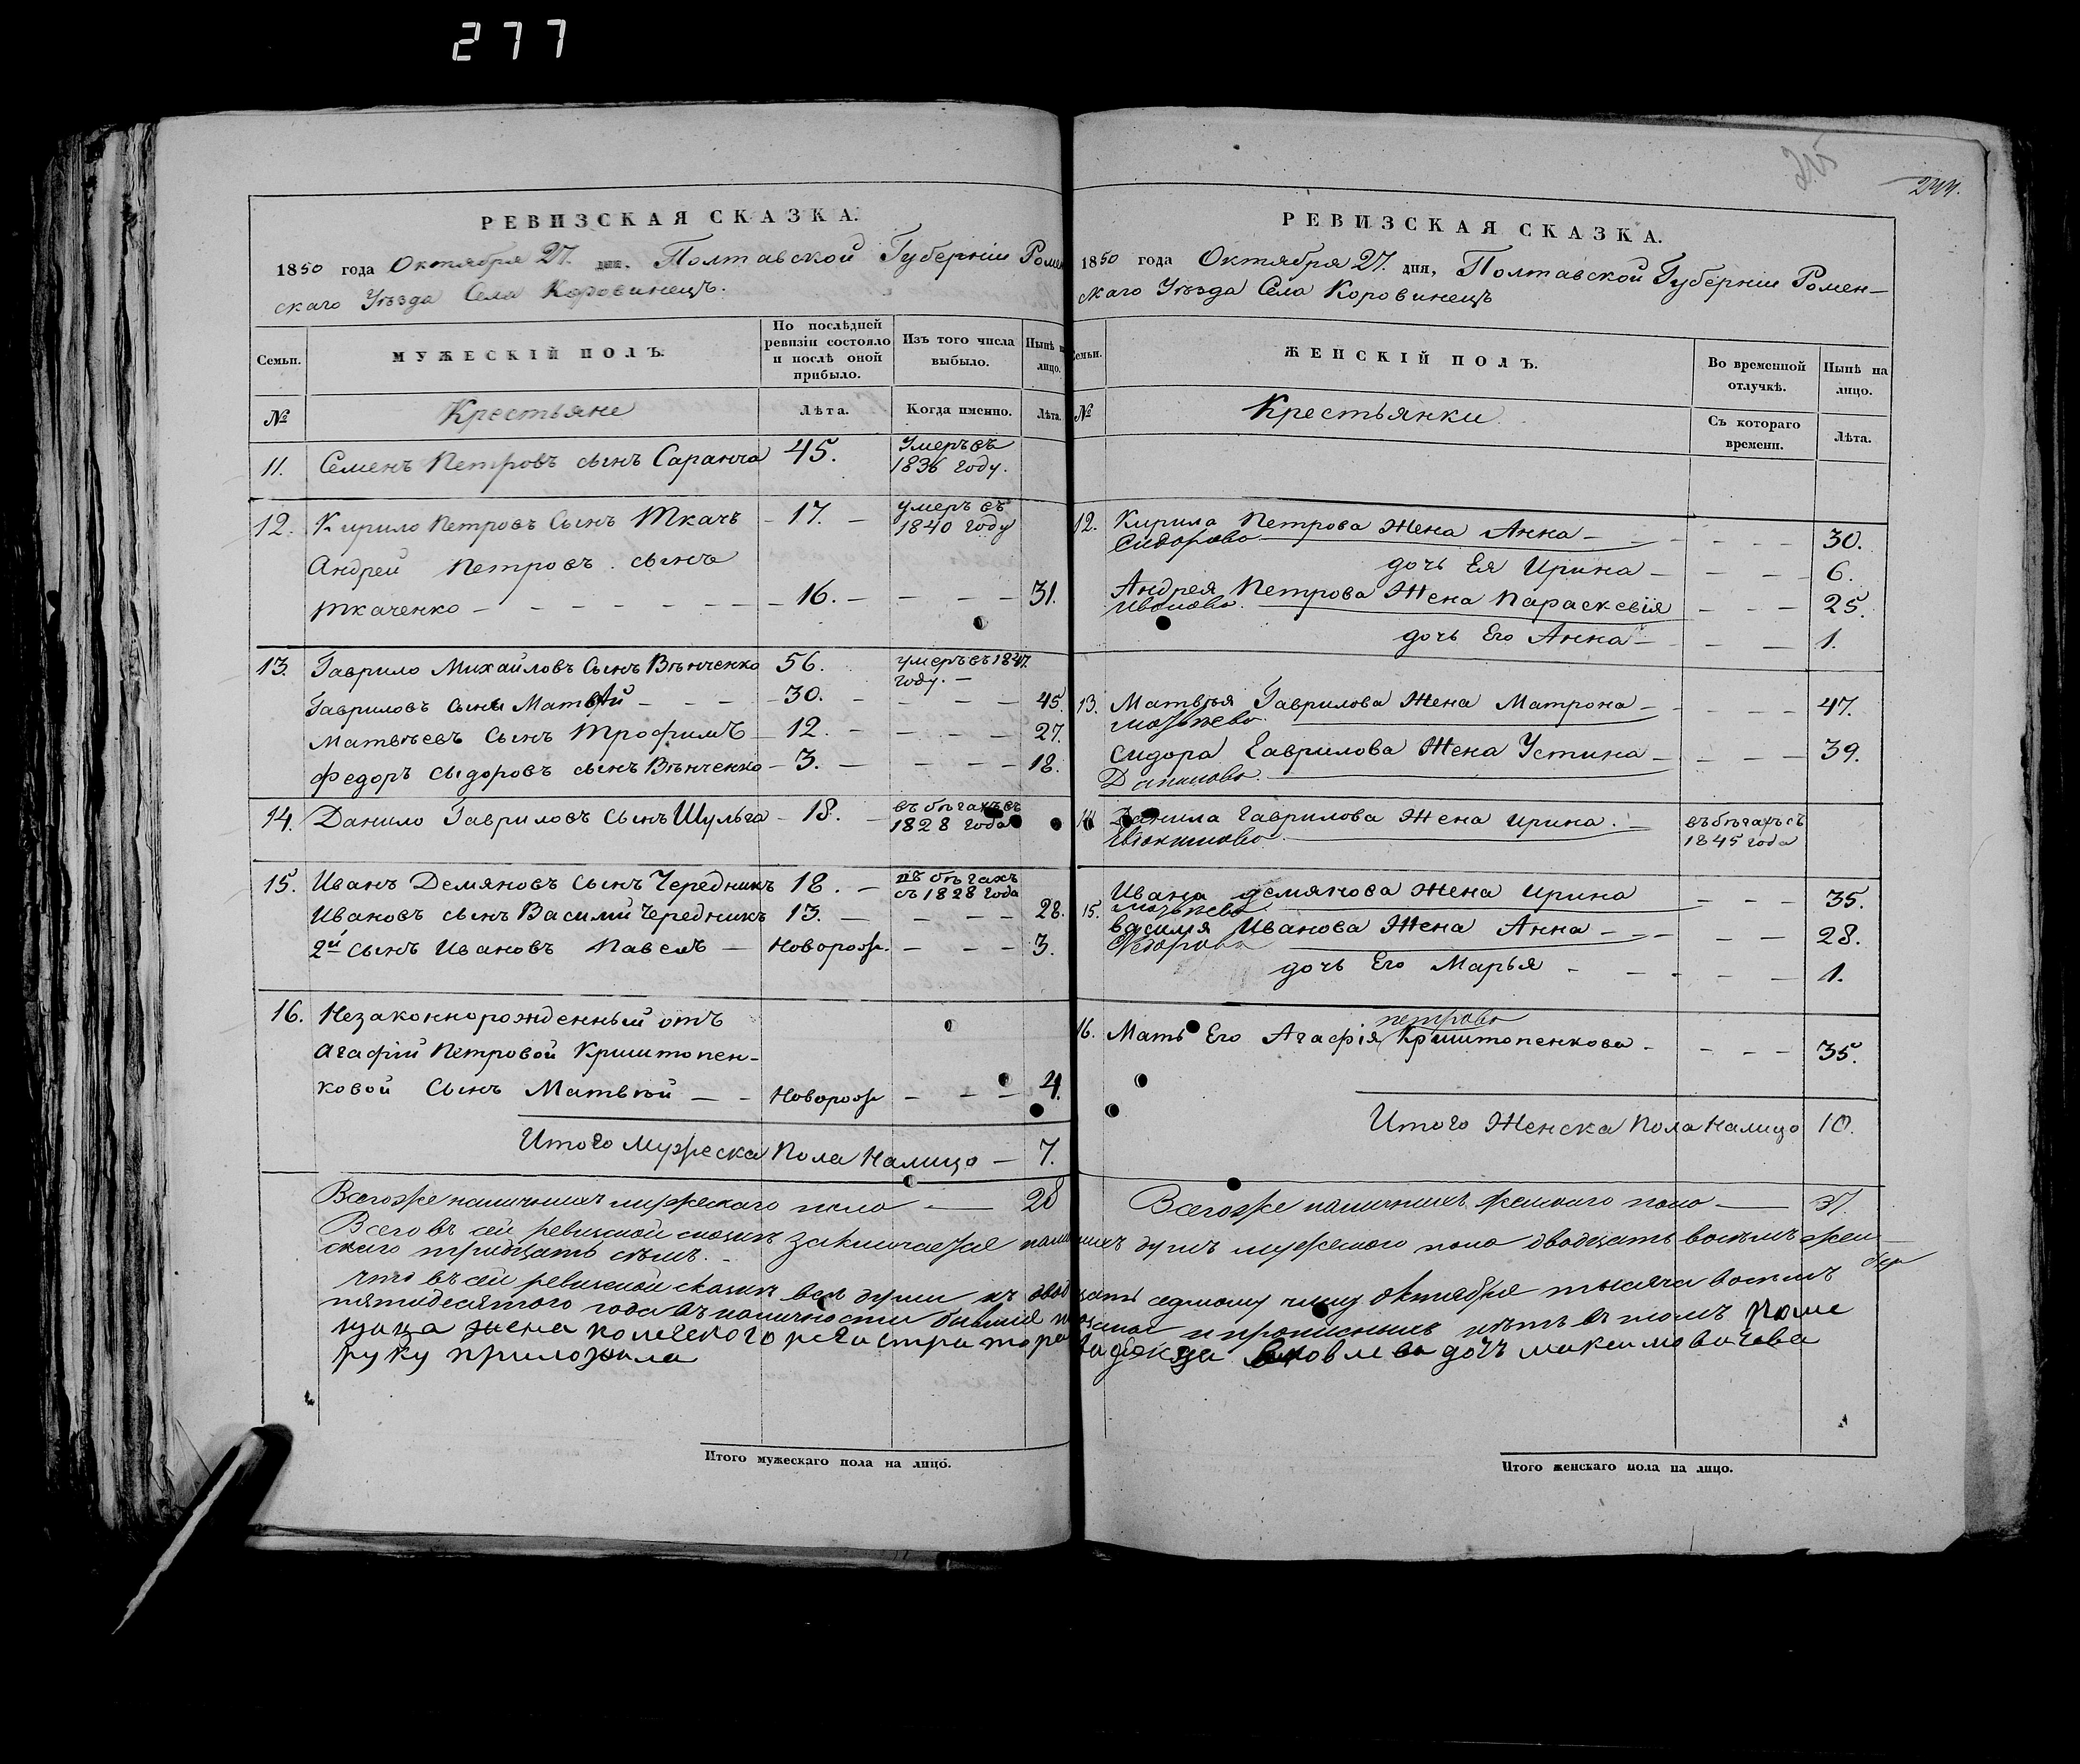 277
РЕВИЗСКАЯ СКАЗКА.
1850 года Октября 27. дня, Полтавской Губерніи Ромен
скаго Уѣзда Села Коровинецъ.
Семьи.
МУЖЕСКІЙ ПОЛЪ.
По послѣдней ревизіи состояло и послѣ оной прибыло.
Изъ того числа выбыло.
Нынѣ
лицо.
№
Крестьяне
Лѣта.
Когда именно.
Лѣта.
11. Семенъ Петровъ сынъ Саранча 45. Умеръ въ
1836 году.
12. Кирило Петровъ Сынъ Ткачъ - 17. - умеръ въ
1840 году
Андрей Петровъ сынъ
Ткаченко - 16. - 31.
13. Гаврило Михайловъ Сынъ Вѣнченко 56. умеръ въ 1847.
году. -
Гавриловъ сынъ Матвѣй - 30. - 45.
Матвѣевъ Сынъ Трофимъ - 12. - 27.
Федоръ Сыдоровъ сынъ Вѣнченко - 3. - 18.
14. Данило Гавриловъ сынъ Шульга - 18. - въ бѣгахъ съ
1828 года
15. Иванъ Демяновъ Сынъ Чередникъ 18. - въ бѣгахъ
съ 1828 года
Ивановъ сынъ Василій Чередникъ 13. - 28.
2й сынъ Ивановъ Павелъ - Новорож. - 3.
16. Незаконнорожденный отъ
Агафіи Петровой Криштопен-
ковой Сынъ Матвѣй - Новорож - 4.
Итого Мужеска Пола Налицо - 7.
Всегоже наличныхъ мужескаго пола - 28
РЕВИЗСКАЯ СКАЗКА.
244.
1850 года Октября 27. дня, Полтавской Губерніи Ромен-
скаго Уѣзда Села Коровинецъ
Семьи.
ЖЕНСКІЙ ПОЛЪ.
Во временной отлучкѣ.
Нынѣ на лицо.
№
Крестьянки.
Съ котораго времени.
Лѣта.
12. Кирила Петрова Жена Анна - 30.
Сидорова
дочь Ея Ирина - 6.
Андрея Петрова Жена Параскевія - 25.
Иванова.
дочь Его Анна - 1.
13. Матвѣя Гаврилова Жена Матрона - 47.
Сидора Гаврилова Жена Устина - 39.
14. Данила Гаврилова Жена Ирина. - въ бѣгахъ съ
1845 года
15. Ивана Демянова Жена Ирина - 35.
Василя Иванова Жена Анна - 28.
Федорова
дочь Его Марья - 1.
16. Мать Его Агафія Петрова Криштопенкова - 35.
Итого Женска Пола Налицо 10.
Всегоже наличныхъ женскаго пола - 37.
Всего въ сей ревизской сказкѣ заключается наличныхъ душъ мужескаго пола двадцать восемъ жен-
скаго тридцать семь. -
Что въ сей ревизской сказкѣ всѣ души къ двадцать седмому числу октября тысяча восемъ
пятидесятого года въ наличности бывшіе показаны и прописныхъ нѣтъ въ томъ поме
щица жена колежского регистратора
руку приложила
Итого мужескаго пола на лицо.
Итого женскаго пола на лицо.